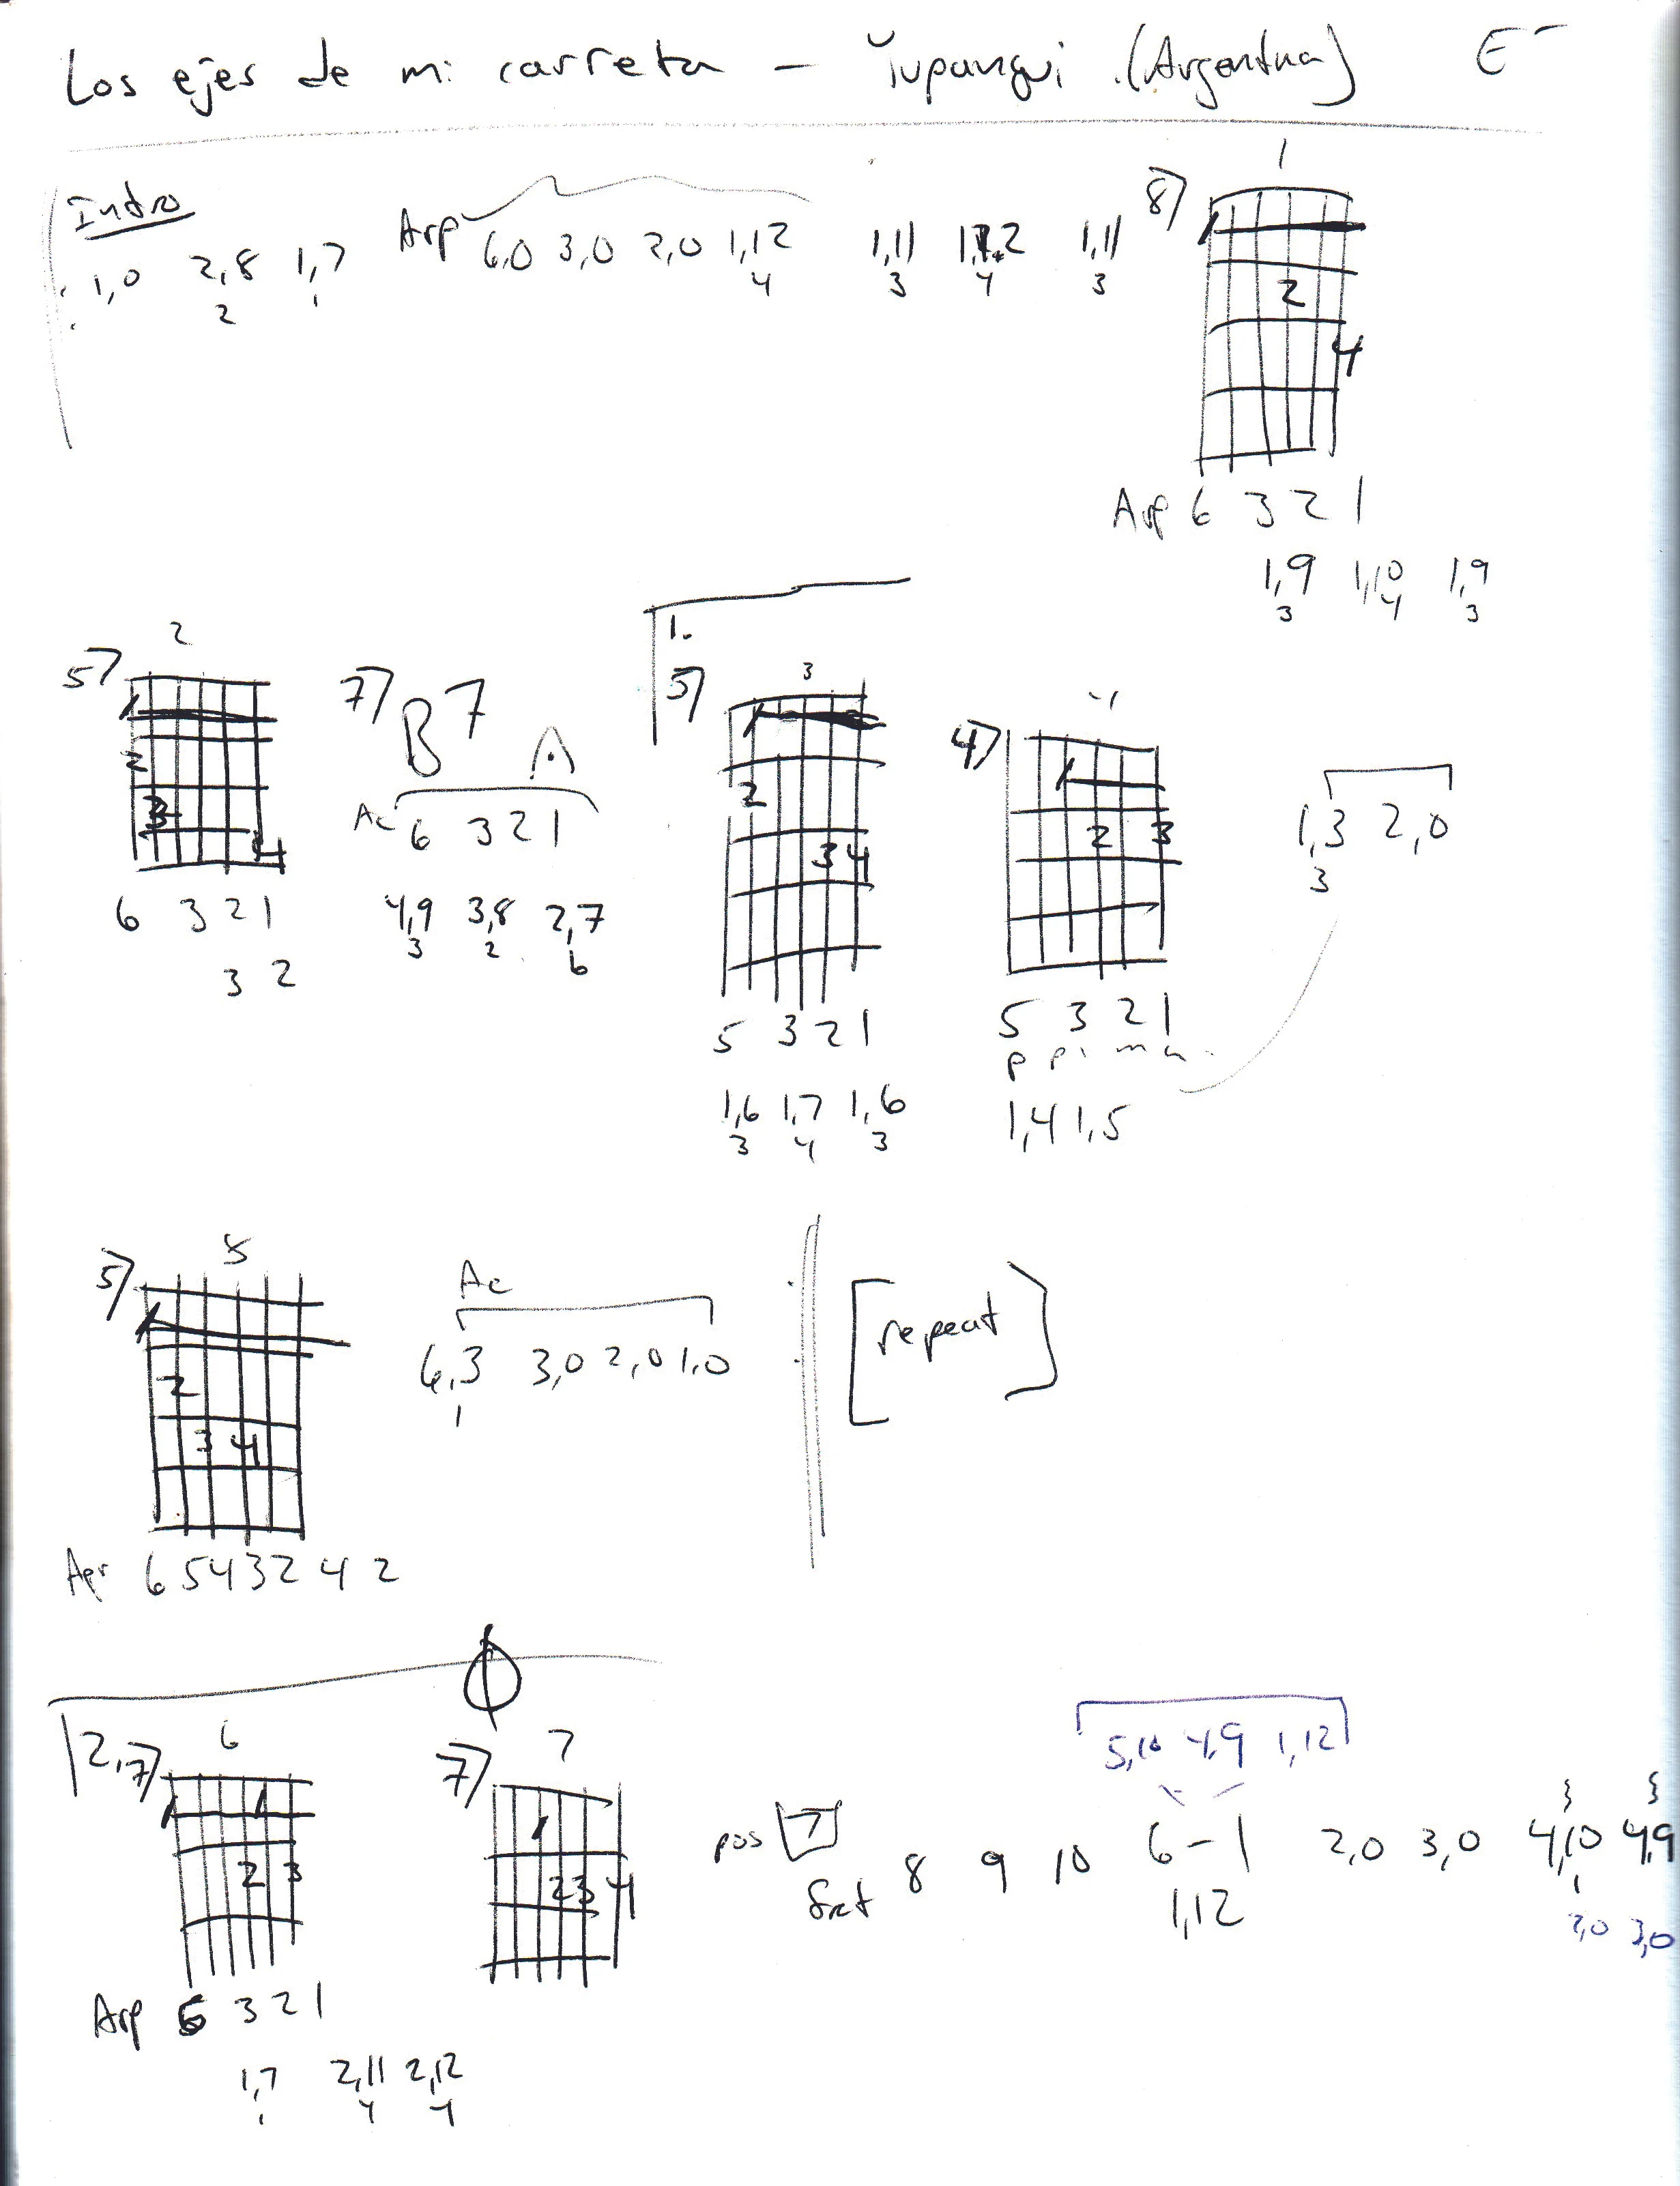 Los ejes de mi carreta — Yupanqui (Argentina) E-
Intro
1,0 2,8 1,7 Arp 6,0 3,0 2,0 1,12 1,11 1,12 1,11
2 1 4 3 4 3
1
8)
1
2
4
Arp 6 3 2 1
1,9 1,10 1,9
3 4 3
2
5)
1
2
3
4
6 3 2 1
3 2
7) B7
Ac 6 3 2 1
4,9 3,8 2,7
3 2
1.
3
5)
1
2
3 4
5 3 2 1
1,6 1,7 1,6
3 4 3
4
4)
1
2 3
5 3 2 1
p p i m a
1,4 1,5
1,3 2,0
3
5
5)
1
2
3 4
Apr 6 5 4 3 2 4 2
Ac
6,3 3,0 2,0 1,0
1
[repeat]
2.
6
7)
1 1
2 3
Arp 6 3 2 1
1,7 2,11 2,12
1 4 4
7
7)
1
2 3 4
5,10 4,9 1,12
pos 7 8 9 10 6-1 2,0 3,0 4,10 4,9
fret 1,12 1
2,0 3,0